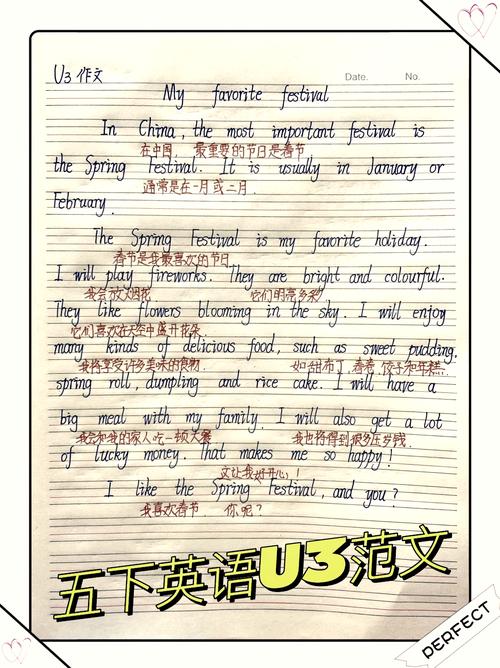 U3 作文
Date. No.
My favorite festival
In China, the most important festival is
在中国 最重要的节日是春节
the Spring Festival. It is usually in January or
通常是在一月或二月.
February.
The Spring Festival is my favorite holiday.
春节是我最喜欢的节日
I will play fireworks. They are bright and colourful.
我会放火烟花 它们明亮多彩
They like flowers blooming in the sky. I will enjoy
它们喜欢在天空中盛开花朵
many kinds of delicious food, such as sweet pudding,
我将享受许多美味的食物. 如甜布丁,春卷,饺子和年糕.
spring roll, dumpling and rice cake. I will have a
big meal with my family. I will also get a lot
我会和我的家人吃一顿大餐 我也将得到很多压岁钱.
of lucky money. That makes me so happy!
这让我好开心!
I like the Spring Festival, and you?
我喜欢春节 你呢?
五下英语U3范文
PERFECT